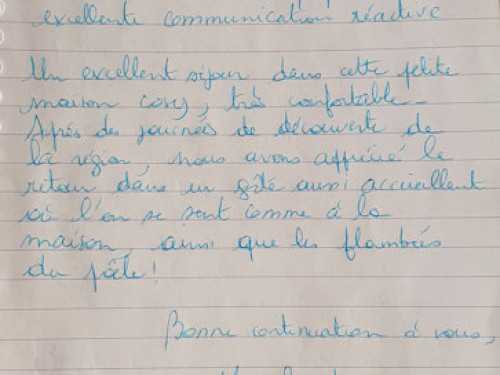 excellente communication réactive
Un excellent séjour dans cette petite
maison cosy, très confortable.
Après des journées de découverte de
la région, nous avons apprécié le
retour dans un gîte aussi accueillant
où l'on se sent comme à la
maison, ainsi que les flambées
du poêle !
Bonne continuation à vous,